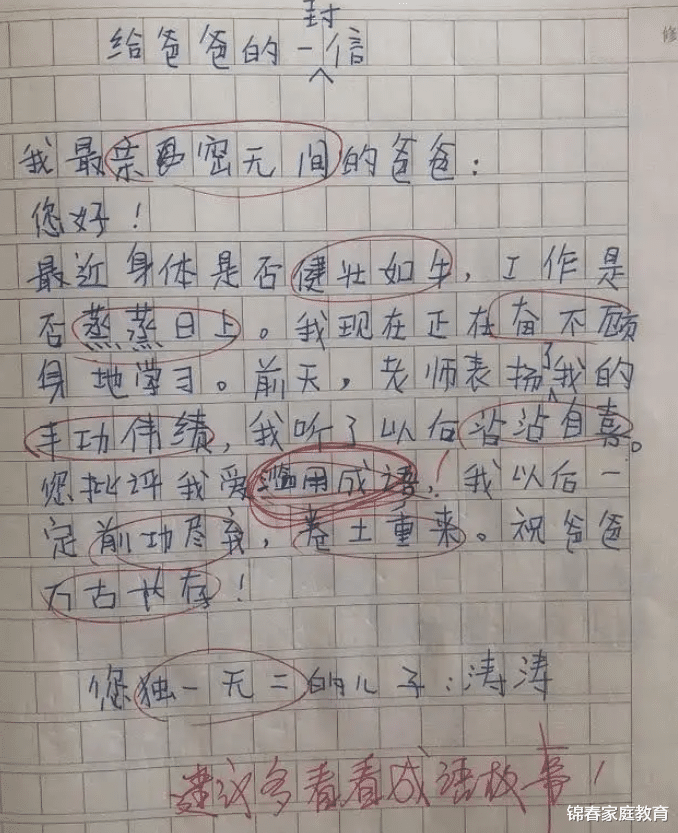 给爸爸的一封信
我最亲密无间的爸爸:
您好!
最近身体是否健壮如牛,工作是
否蒸蒸日上。我现在正在奋不顾
身地学习。前天,老师表扬了我的
丰功伟绩,我听了以后沾沾自喜。
您批评我爱滥用成语!我以后一
定前功尽弃,卷土重来。祝爸爸
万古长存!
您独一无二的儿子:涛涛
建议多看看成语故事!
修
锦春家庭教育